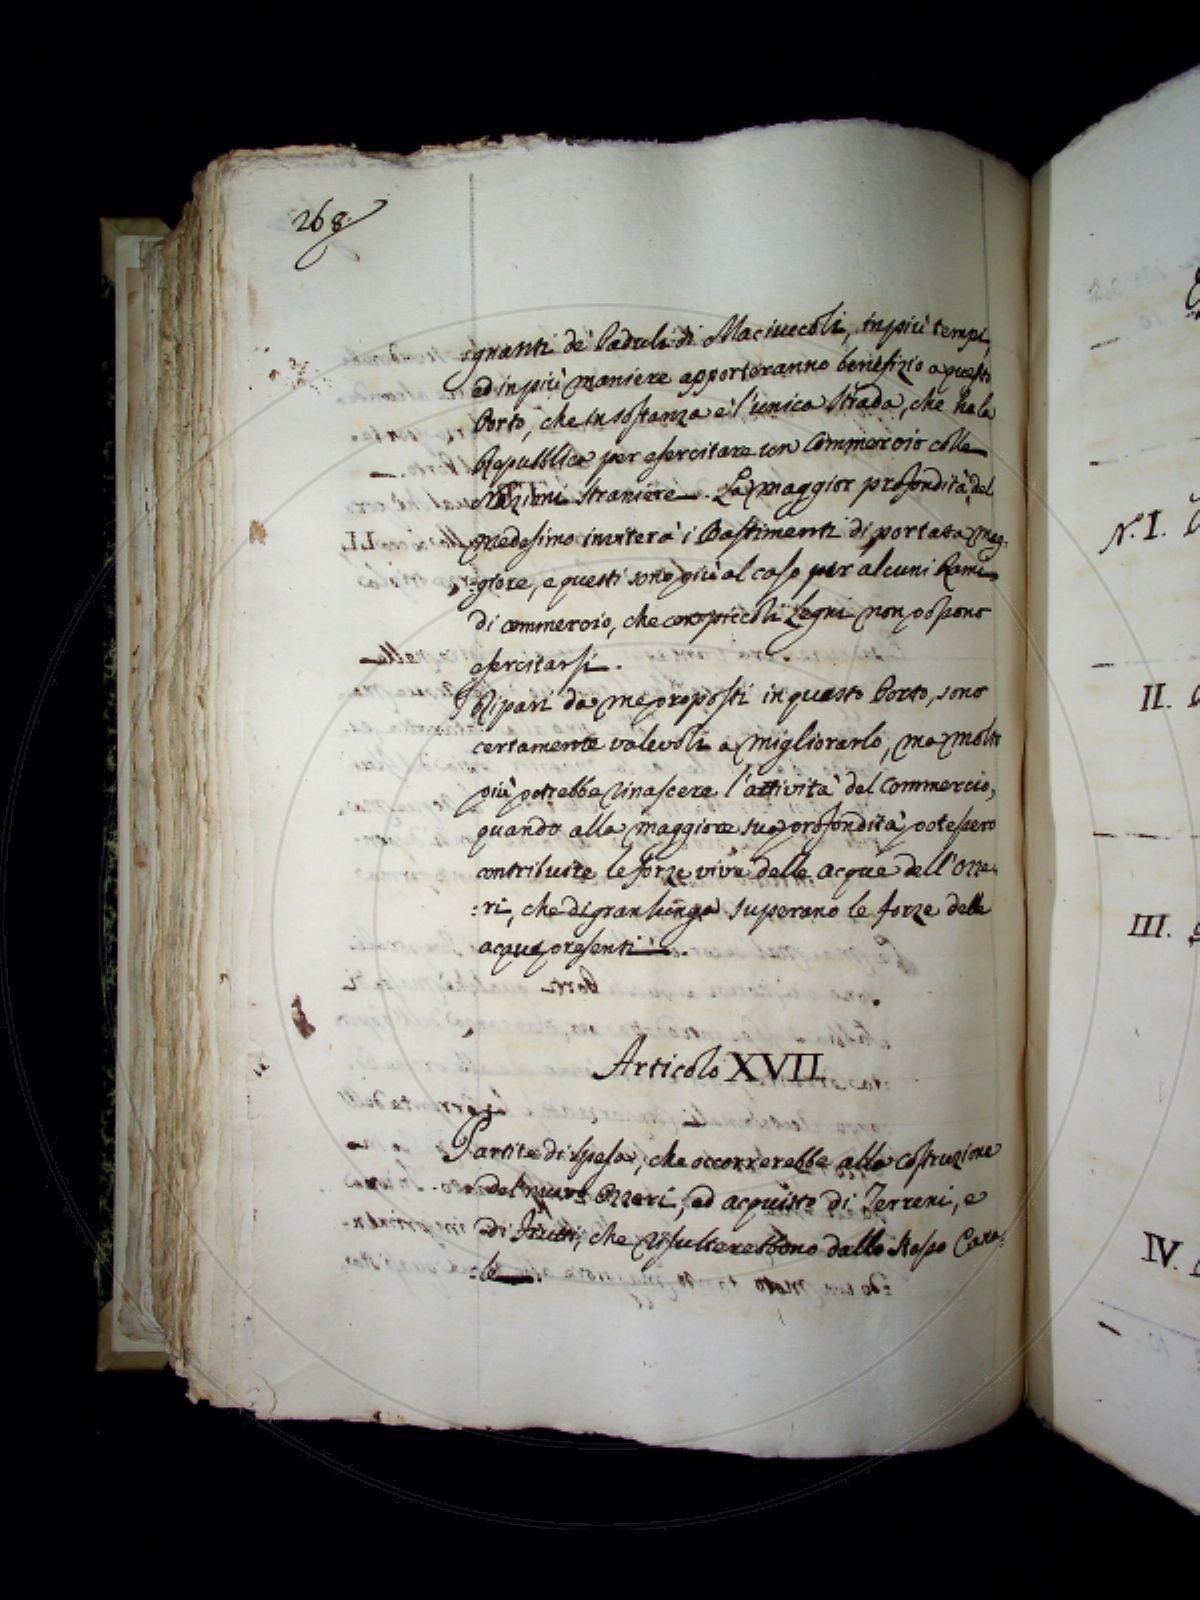 268.
:gnanti de' Paduli di Maciuccoli, in più tempi,
ed in più maniere apporteranno benefizio a questo
Porto, che in sostanza è l'unica Strada, che ha la
Repubblica per esercitare un Commercio colle
Nazioni straniere. La maggior profondità del
medesimo inviterà i Bastimenti di portata mag:
:giore, e questi sono più al caso per alcuni Rami
di commercio, che con piccoli Legni non possono
esercitarsi.
Ripari da me proposti in questo Porto, sono
certamente valevoli a migliorarlo, ma molto
più potrebbe rinascere l'attività del Commercio,
quando alla maggiore sua profondità potessero
contribuire le forze vive delle acque dell'Ozze:
:ri, che di gran lunga superano le forze delle
acque presenti.
Articolo XVII.
Partite di spesa, che occorrerebbe alla costruzione
del nuovo Ozzeri, ed acquisto di Terreni, e
di Frutti, che risulterebbono dallo stesso Cana:
:le.
N. I.
II.
III.
IV.